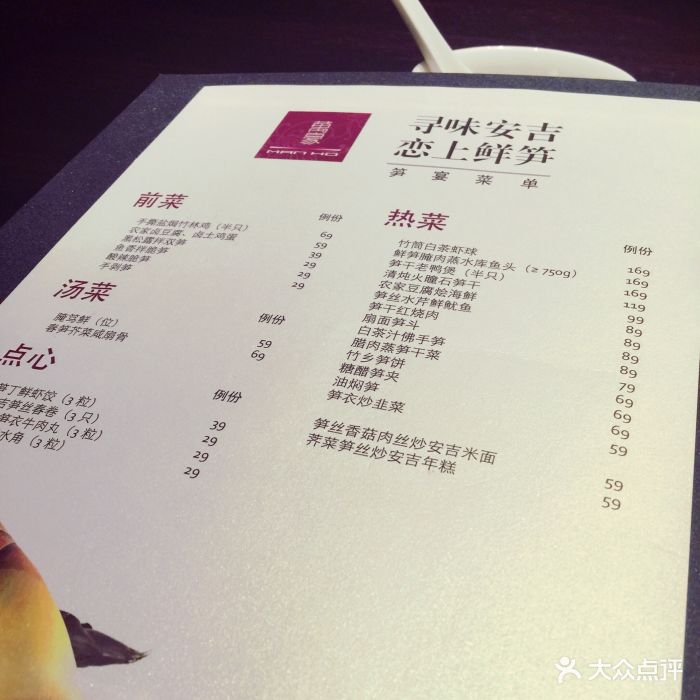 MAN HO
寻味安吉
恋上鲜笋
笋宴菜单
前菜
例份
手撕盐焗竹林鸡（半只） 69
农家卤豆腐、卤土鸡蛋 59
黑松露拌双笋 39
鱼香拌脆笋 29
酸辣脆笋 29
手剥笋 29
汤菜
例份
腌笃鲜（位） 59
春笋芥菜咸扇骨 69
点心
例份
笋丁鲜虾饺（3 粒） 39
吉笋丝春卷（3 只） 29
笋衣牛肉丸（3 粒） 29
水角（3 粒） 29
热菜
例份
竹筒白茶虾球 169
鲜笋腌肉蒸水库鱼头（≥ 750g） 169
笋干老鸭煲（半只） 169
清炖火瞳石笋干 119
农家豆腐烩海鲜 99
笋丝水芹鲜鱿鱼 89
笋干红烧肉 89
扇面笋斗 89
白茶汁佛手笋 89
腊肉蒸笋干菜 79
竹乡笋饼 69
糖醋笋夹 69
油焖笋 69
笋衣炒韭菜 59
笋丝香菇肉丝炒安吉米面 59
荠菜笋丝炒安吉年糕 59
大众点评